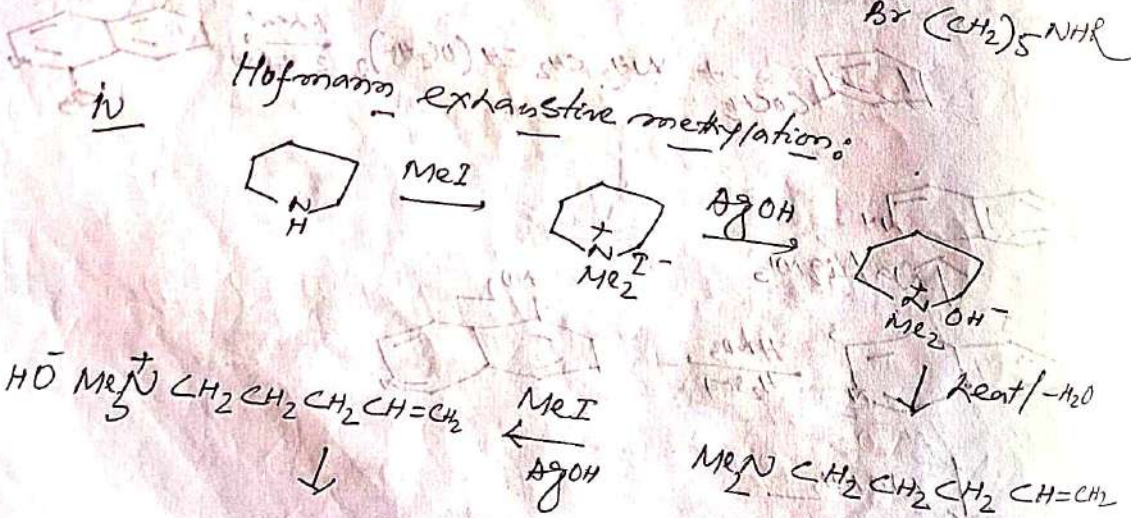 Br (CH₂)₅ NHR
iv Hofmann exhaustive methylation:
N H MeI N⁺ Me₂ I⁻ AgOH N⁺ Me₂ OH⁻
heat/-H₂O
HO⁻ Me₃N⁺ CH₂CH₂CH₂CH=CH₂ MeI AgOH Me₂N CH₂CH₂CH₂ CH=CH₂